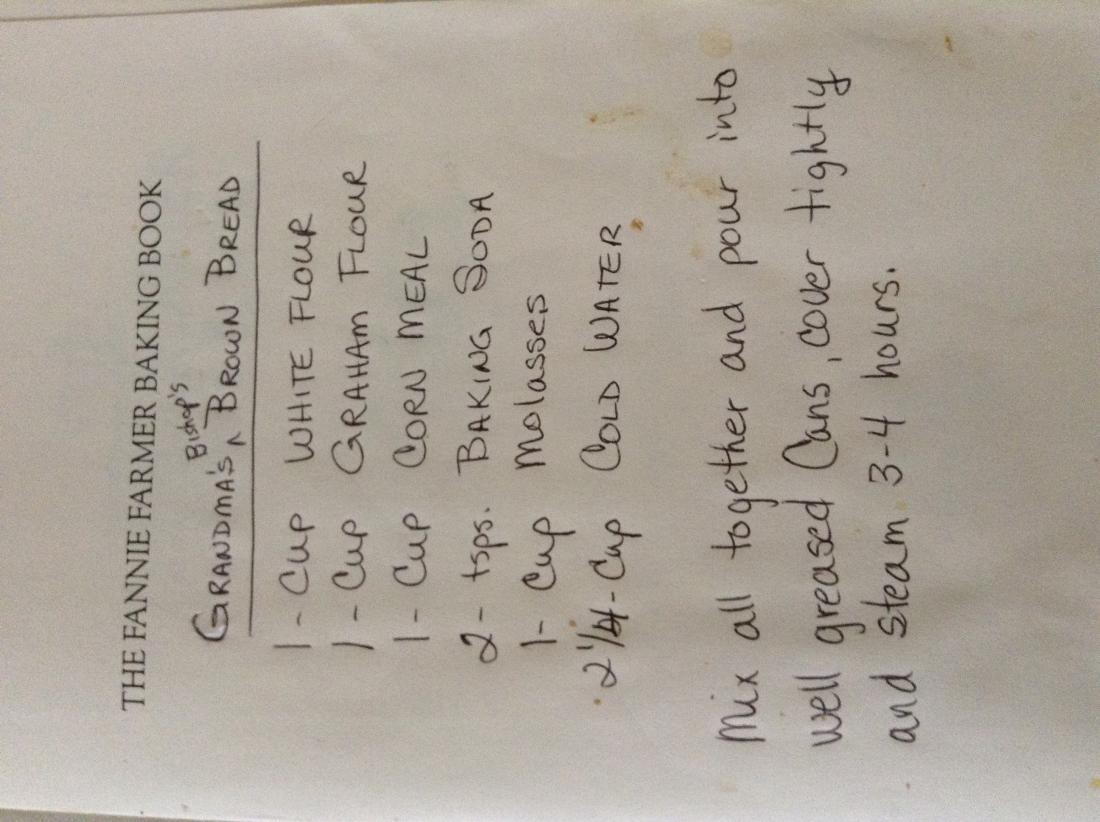 THE FANNIE FARMER BAKING BOOK
Bishop's
GRANDMA'S ^ BROWN BREAD
1 - Cup WHITE FLOUR
1 - Cup GRAHAM FLOUR
1 - Cup CORN MEAL
2 - tsps. BAKING SODA
1 - Cup Molasses
2 1/4 - Cup COLD WATER
Mix all together and pour into
well greased Cans, cover tightly
and steam 3-4 hours.